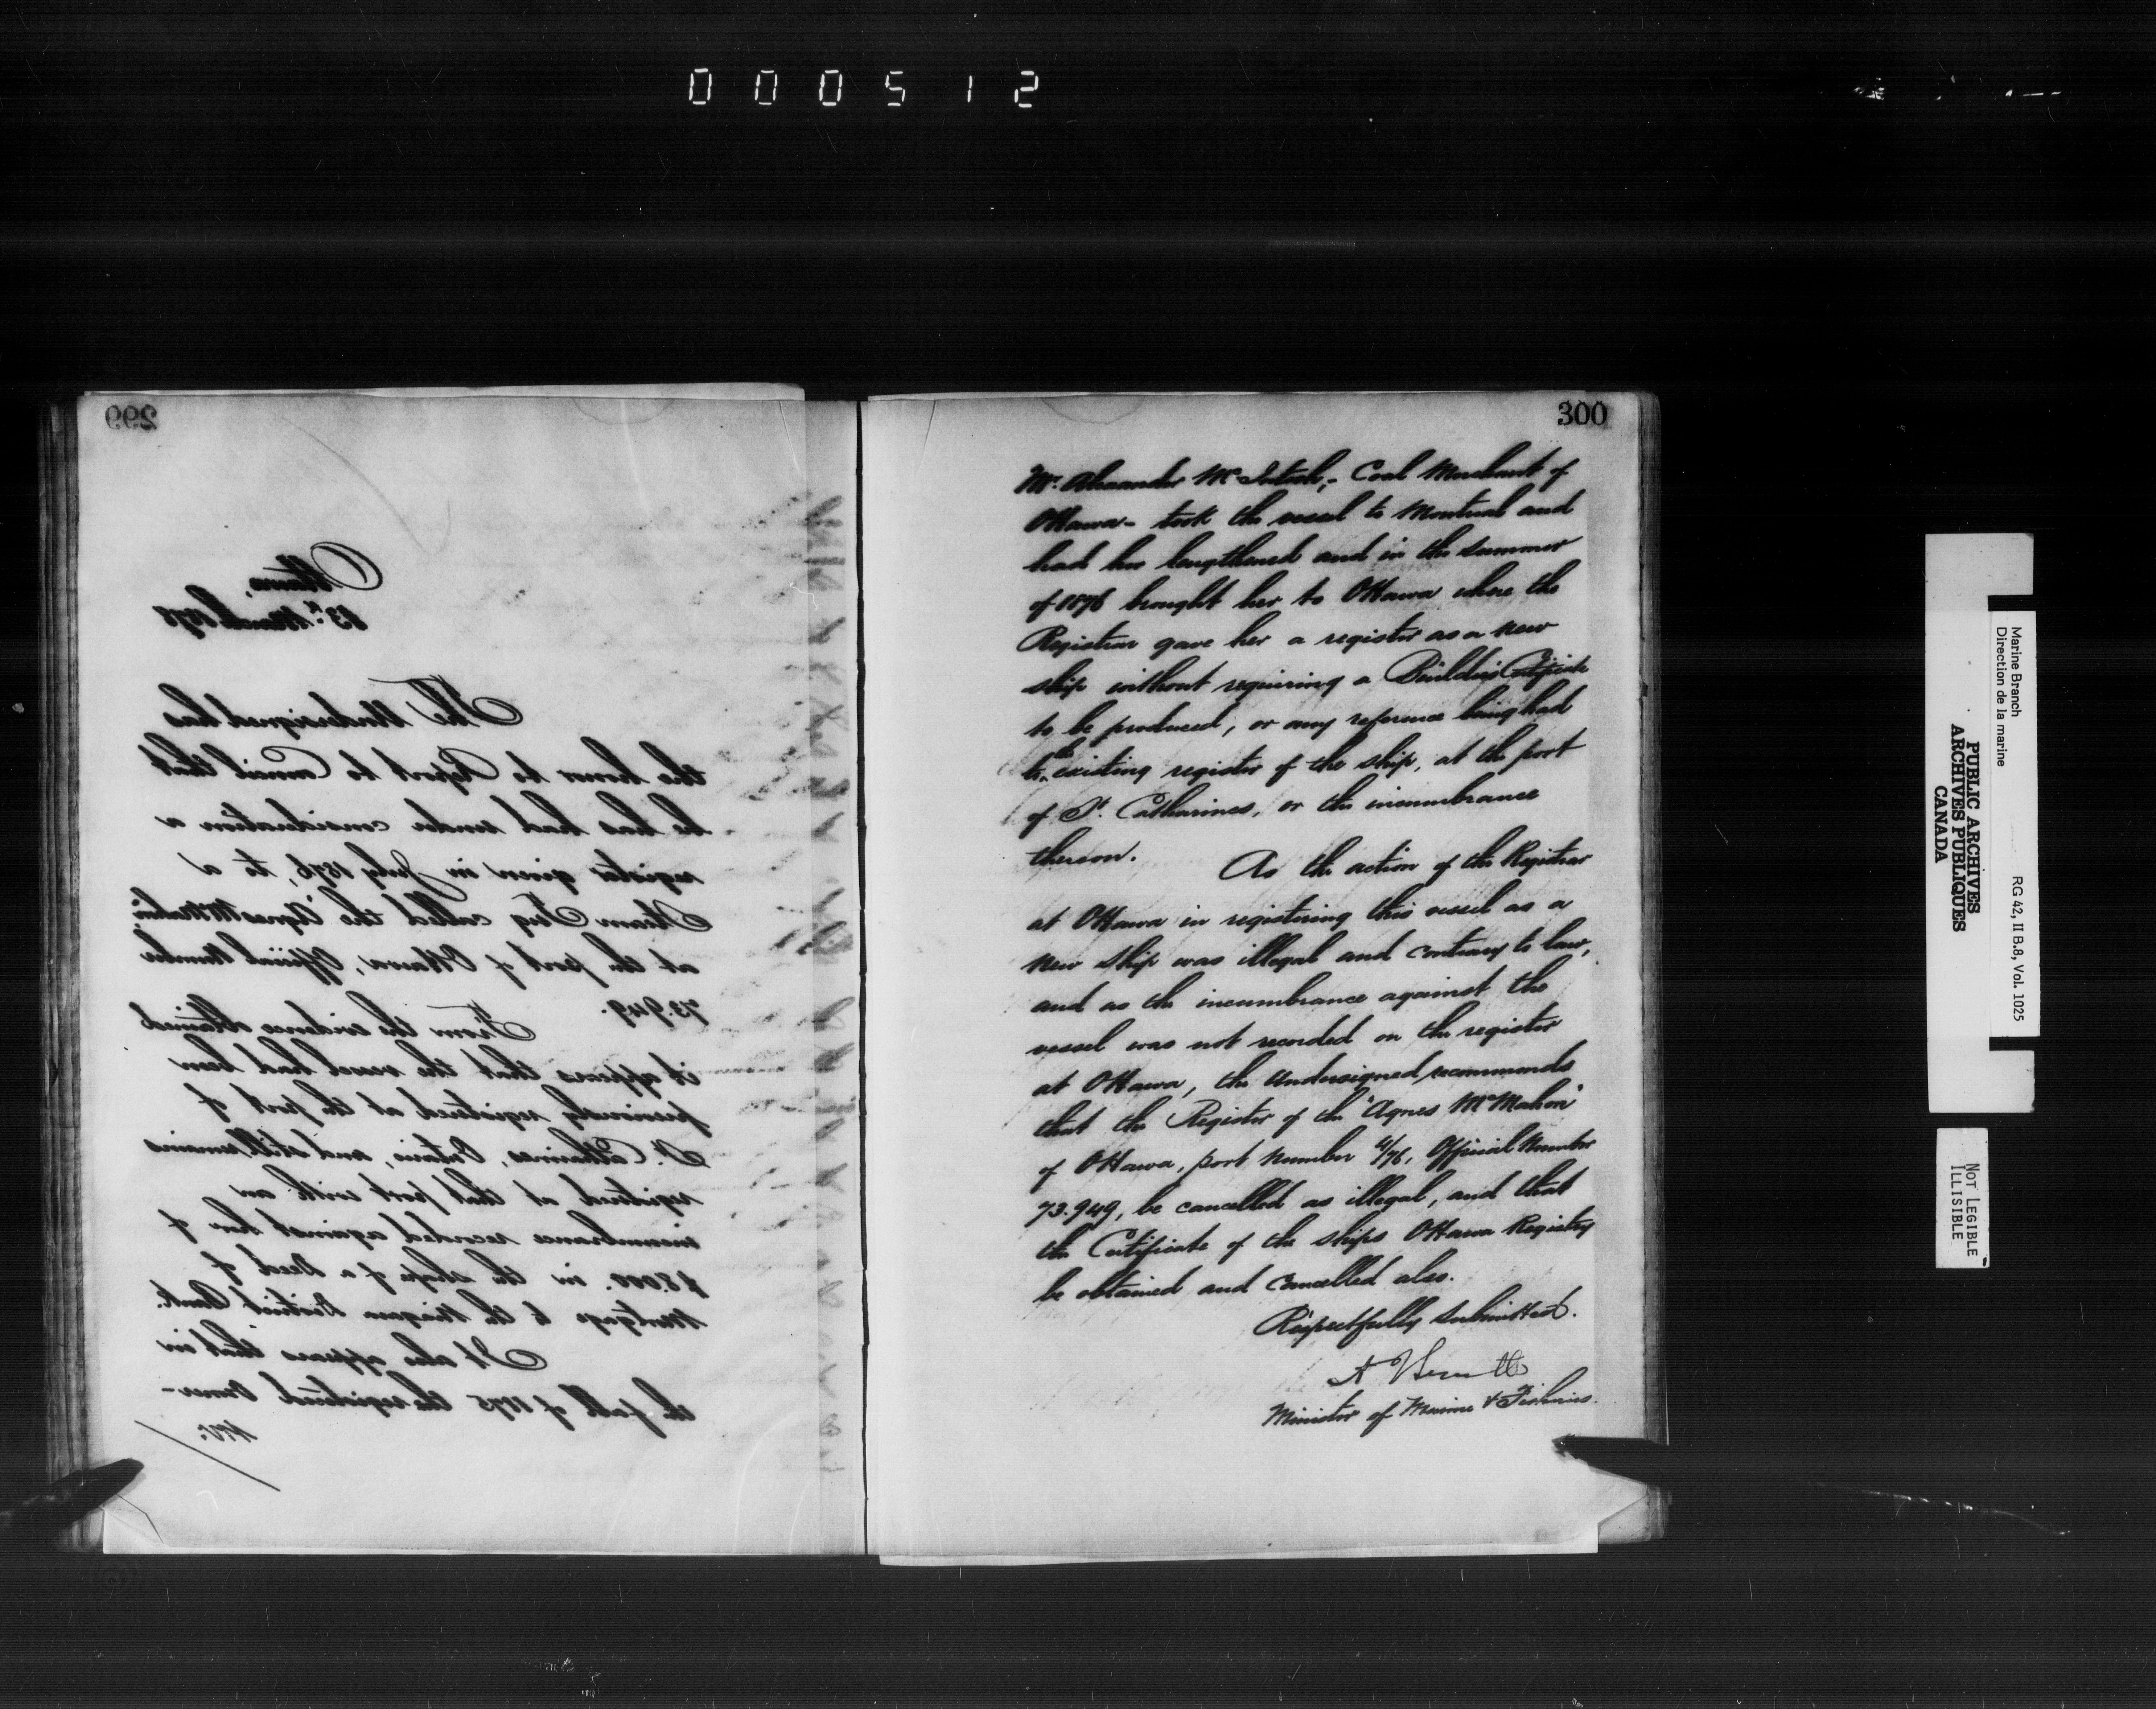 000512
299
Ottawa,
13th March 1878
The Undersigned has
the honor to Report to Council that
he has had under consideration a
register given in July 1876, to a
Steam Tug called the "Agnes McMahon"
at the port of Ottawa, Official Number
73.949.
From the evidence obtained
it appears that the vessel had been
previously registered at the port of
St. Catharines, Ontario, and still remains
registered at that port with an
incumbrance recorded against her of
$8.000. in the shape of a Deed of
Mortgage to the Niagara District Bank.
It also appears that in
the fall of 1875 the registered Owner-
Mr.
300
Mr. Alexander McIntosh,- Coal Merchant of
Ottawa- took the vessel to Montreal and
had her lengthened and in the Summer
of 1876 brought her to Ottawa where the
Registrar gave her a register as a new
ship without requiring a Builder's Certificate
to be produced, or any reference being had
to the existing register of the ship, at the port
of St. Catharines, or the incumbrance
thereon.
As the action of the Registrar
at Ottawa in registering this vessel as a
new ship was illegal and contrary to law,
and as the incumbrance against the
vessel was not recorded on the register
at Ottawa, the Undersigned recommends
that the Register of the "Agnes McMahon"
of Ottawa, port Number 4/76, Official Number
73.949, be cancelled as illegal, and that
the Certificate of the ships Ottawa Registry
be obtained and Cancelled also.
Respectfully Submitted.
Minister of Marine & Fisheries.
Marine Branch
Direction de la marine
RG 42, II B.8, Vol. 1025
PUBLIC ARCHIVES
ARCHIVES PUBLIQUES
CANADA
NOT LEGIBLE
ILLISIBLE